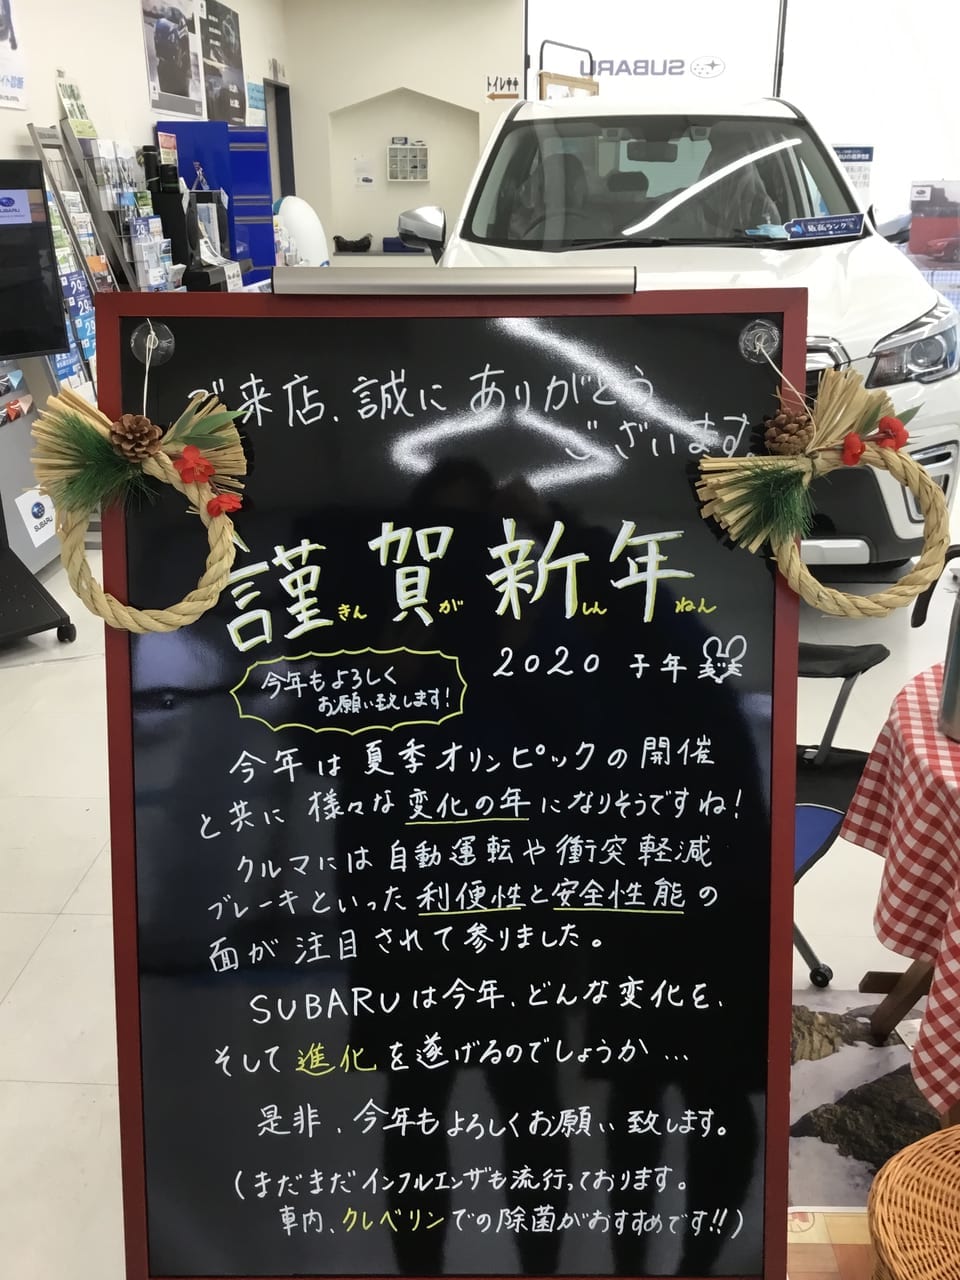 トイレ
SUBARU
SUBARU
ご来店、誠にありがとう
ございます。
謹賀新年
きん が しん ねん
2020 子年
今年もよろしく
お願い致します!
今年は夏季オリンピックの開催
と共に様々な変化の年になりそうですね!
クルマには自動運転や衝突軽減
ブレーキといった利便性と安全性能の
面が注目されて参りました。
SUBARUは今年、どんな変化を、
そして進化を遂げるのでしょうか…
是非、今年もよろしくお願い致します。
(まだまだインフルエンザも流行っております。
車内、クレベリンでの除菌がおすすめです!!)
SUBARU